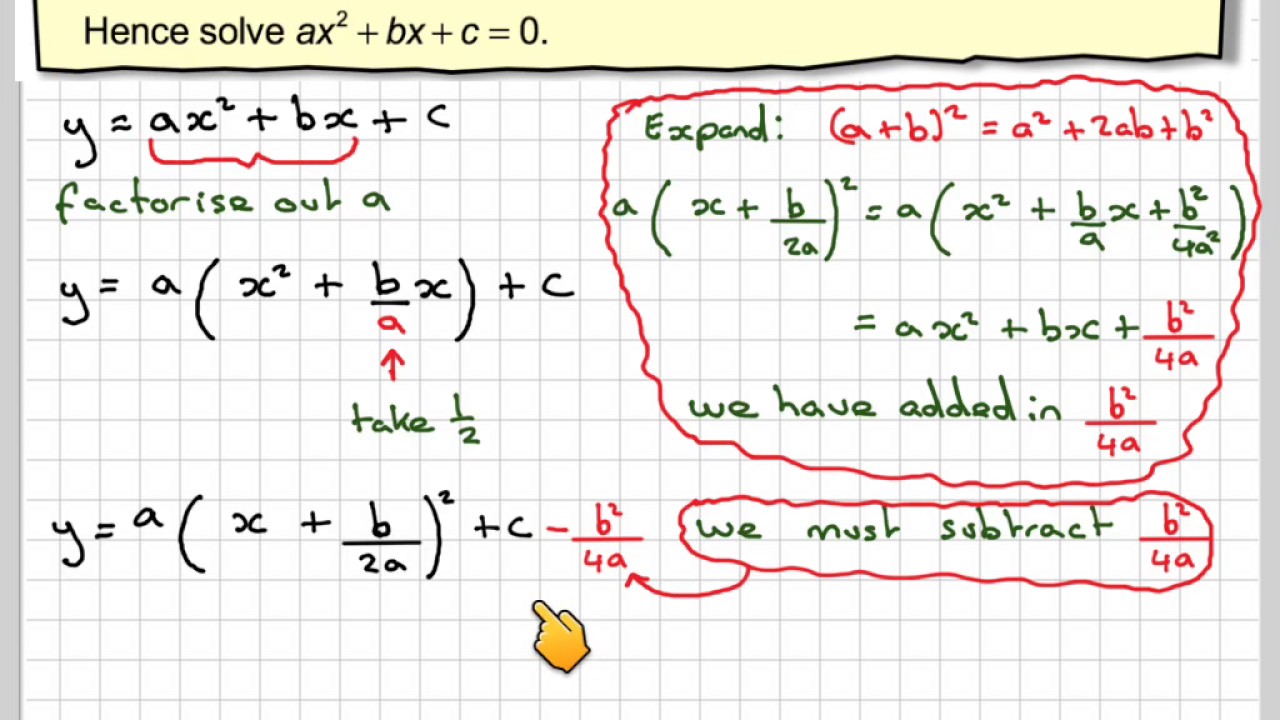 Hence solve ax² + bx + c = 0.
y = ax² + bx + c
factorise out a
y = a ( x² + b/a x ) + c
↑
take 1/2
y = a ( x + b/2a )² + c - b²/4a
Expand: (a+b)² = a² + 2ab + b²
a ( x + b/2a )² = a ( x² + b/a x + b²/4a² )
= ax² + bx + b²/4a
we have added in b²/4a
we must subtract b²/4a